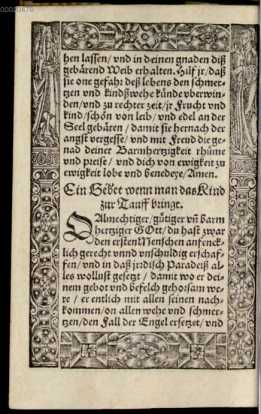 hen lassen/ vnd in deinen gnaden diß
gebärend Weib erhalten. Hilf jr/ daß
sie one gefahr deß lebens den schmer-
tzen vnd kindßwehe künde vberwin-
den/ vnd zu rechter zeit/ jr Frucht vnd
kind/ schön von leib/ vnd edel an der
Seel gebären/ damit sie hernach der
angst vergesse/ vnd mit Freud die ge-
nad deiner Barmhertzigkeit rhüme
vnd preise/ vnd dich von ewigkeit zu
ewigkeit lobe vnd benedeye/ Amen.
Ein Gebet wenn man das Kind
zur Tauff bringt.
O Almechtiger/ gütiger vñ barm
hertziger GOtt/ du hast zwar
den ersten Menschen anfenck-
lich gerecht vnnd vnschuldig erschaf-
fen/ vnd in daß jrdisch Paradeiß al-
les wollusts gesetzt/ damit wo er dei-
nem gebot vnd befelch gehorsam we-
re/ er entlich mit allen seinen nach-
kommen/ on allen wehe vnd schmer-
tzen/ den Fall der Engel ersetzet/ vnd